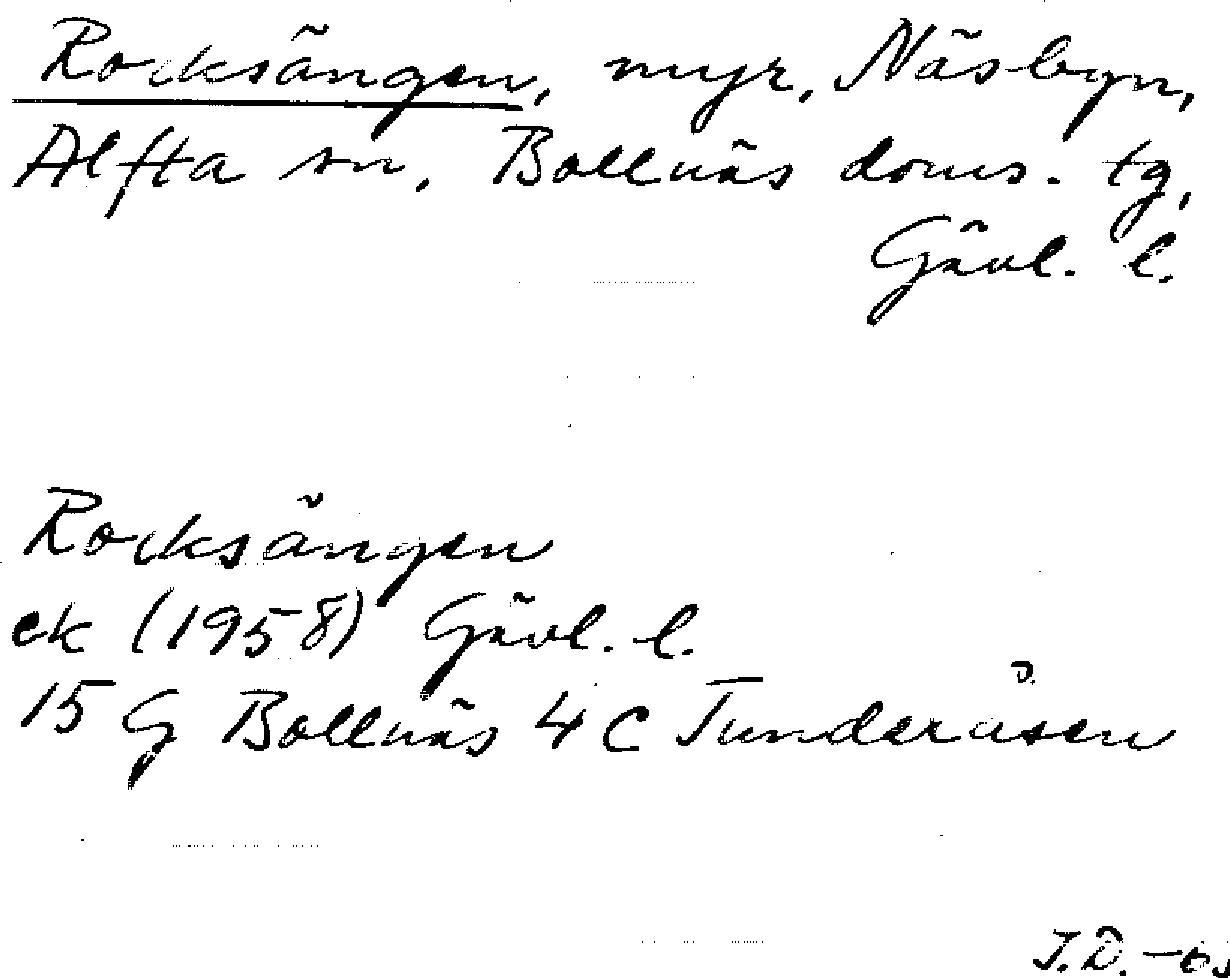 Rocksängen, myr, Näsbyn,
Alfta sn, Bollnäs doms. tg,
Gävl. l.
Rocksängen
ek (1958) Gävl. l.
15 G Bollnäs 4 C Tunderåsen